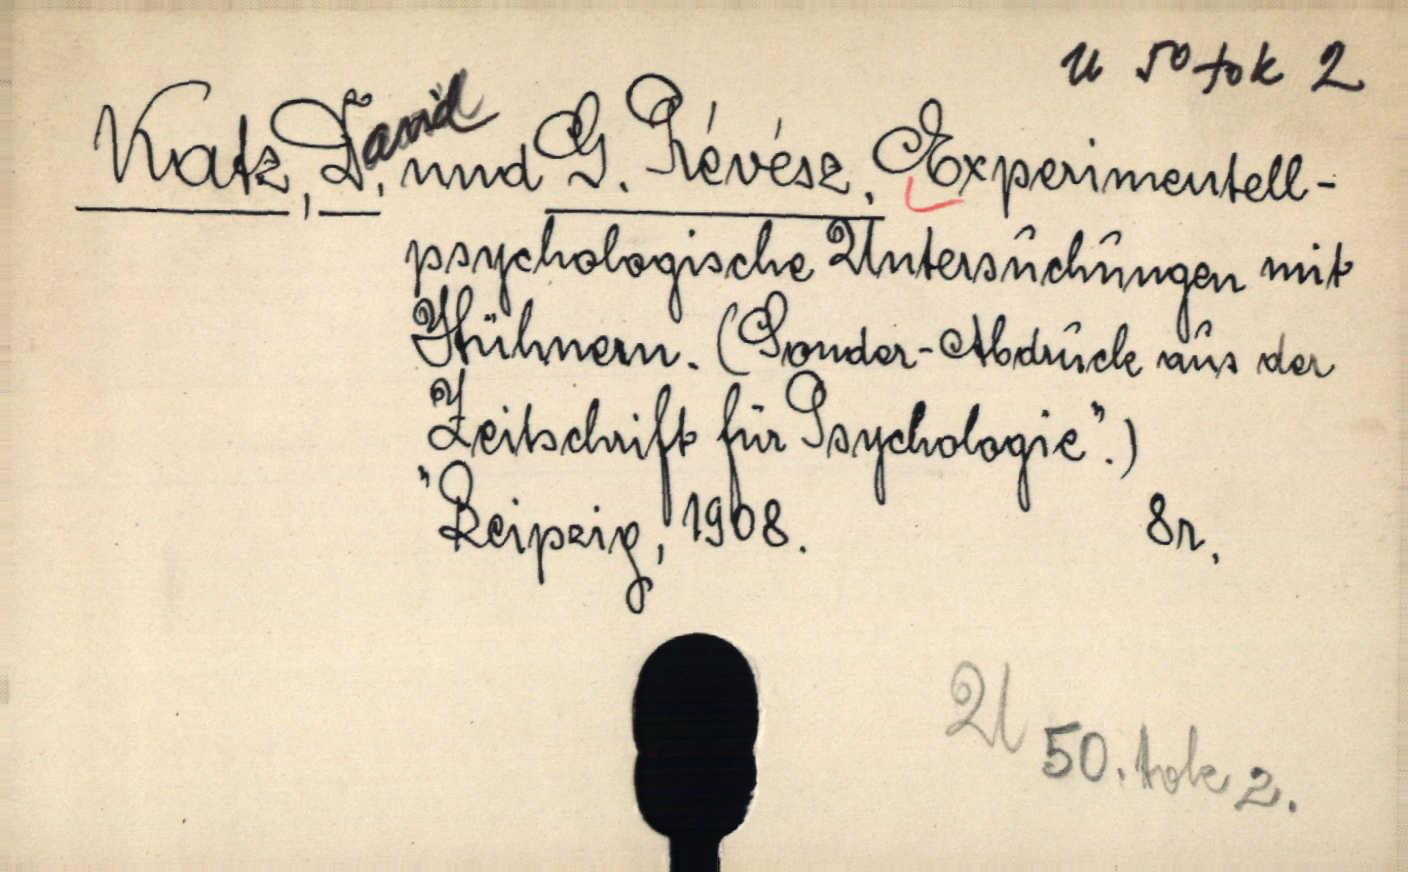 U 50 tok 2
Katz, David, und G. Révész, Experimentell-
psychologische Untersuchungen mit
Hühnern. (Sonder-Abdruck aus der
Zeitschrift für Psychologie".)
"Leipzig, 1908. 8r.
U 50. tok 2.